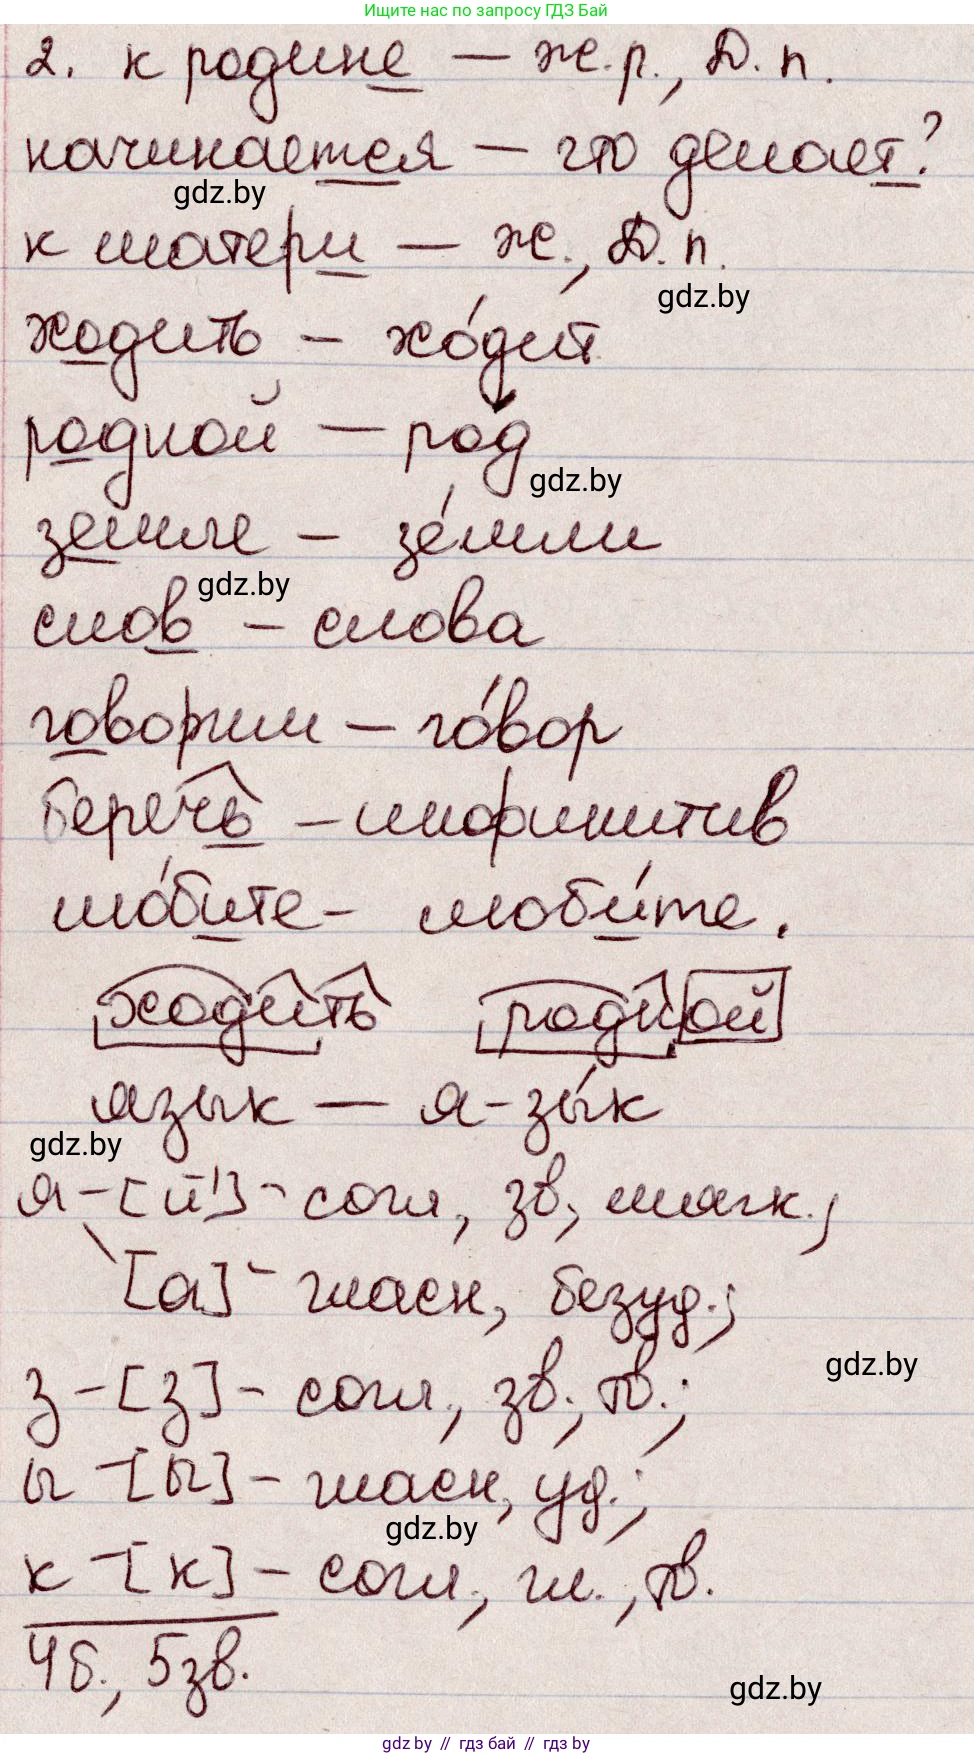 Ищите нас по запросу ГДЗ Бай
2. к родине — ж.р., Д. п.
начинается — что делает?
gdz.by
к матери — ж., Д. п.
gdz.by
ходить — хо́дит
родной — род
gdz.by
земле — зе́мли
gdz.by
слов — слова
говорим — го́вор
беречь — инфинитив
лю́бите — люби́те.
ходить родной
язык — я-зы́к
gdz.by
я - [й'] - согл, зв, мягк.;
[а] - гласн, безуд.;
gdz.by
з - [з] - согл., зв., тв.;
ы - [ы] - гласн, уд.;
gdz.by
к - [к] - согл., гл., тв.
4б., 5зв.
gdz.by
gdz.by // гдз бай // гдз by